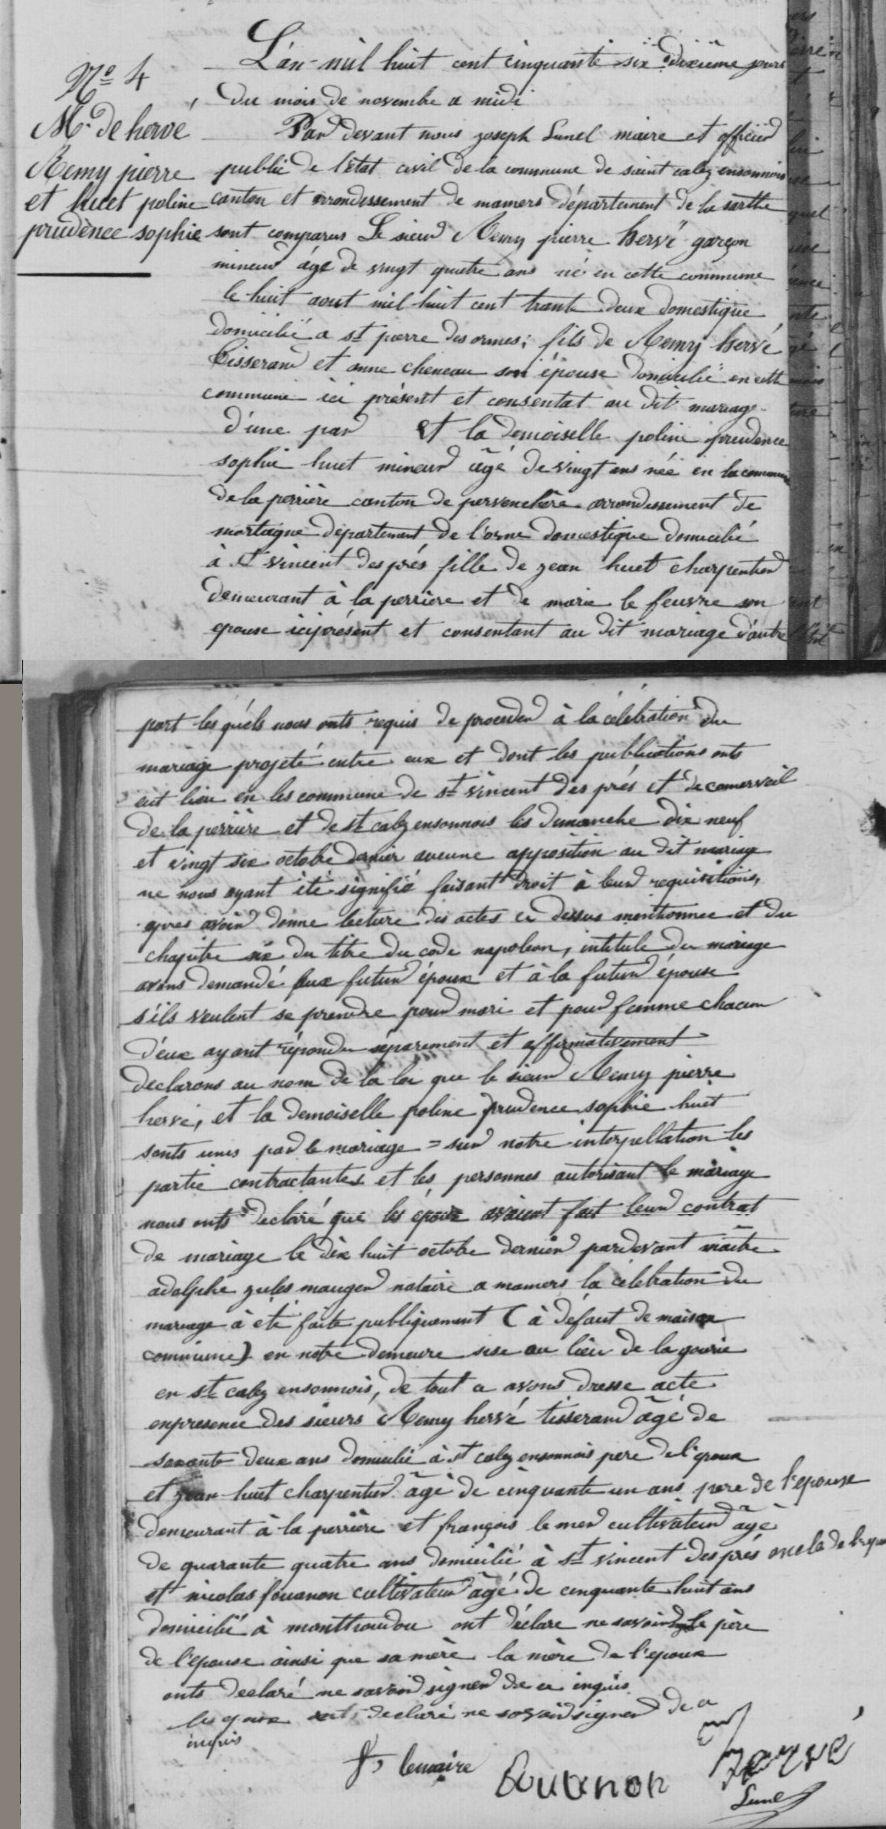 Nº 4
M. de hervé
Remy pierre
et huet poline
prudence sophie
L'an mil huit cent cinquante six dixième jours
du mois de novembre a midi
Par devant nous joseph Lunel maire et officier
public de l'état civil de la commune de saint calez ensonnois
canton et arrondissement de mamers département de la sarthe
sont comparus Le sieur Remy pierre hervé garçon
mineur âgé de vingt quatre ans né en cette commune
le huit aout mil huit cent trante deux domestique
domicilié a st pierre des ormes, fils de Remy hervé
tisserand et anne cheneau son épouse domicilié en cette
commune ici présent et consentat au dit mariage
d'une par et la demoiselle poline prudence
sophie huet mineur âgé de vingt ans née en la commune
de la perrière canton de pervenchère arrondissement de
mortagne département de l'orne domestique domicilié
à st vincent des prés fille de jean huet charpentier
demeurant à la perriere et de marie le feuvre son
epouse ici présent et consentant au dit mariage d'autre
part les quéls nous onts requis de proceder à la célébration du
mariage projeté entre eux et dont les publications onts
eut lieu en les commune de st vincent des prés et de comerveil
de la perriere et de st calez ensonnois les dimanche dix neuf
et vingt six octobe dernier aucune apposition au dit mariage
ne nous ayant été signifié faisant droit à leur requisitions,
apres avoir donne lecture des actes ci dessus mentionnee et du
chapitre six du titre du code napoleon, intitule du mariage
avons demandé aux futur époux et à la futur épouse
s'ils veulent se prendre pour mari et pour femme chacun
d'eux ayant répondu séparement et affirmativement
declarons au nom de la loi que le sieur Remy pierre
hervé, et la demoiselle poline prudence sophie huet
sonts unis par le mariage = sur notre interpellation les
partie contractantes et les personnes autorisant le mariage
nous onts declaré que les époux avaient fait leur contrat
de mariage le dix huit octobre dernier pardevant maitre
adolphe jules mauger notaire a mamers la célébration du
mariage à été faite publiquement (à défaut de maison
commune) en notre demeure sise au lieu de la gourie
en st calez ensonnois, de tout ce avons dresse acte
en presence des sieurs Remy hervé tisserand âgé de
soixante deux ans domicilié à st calez ensonnois pere de l'epoux
et jean huet charpentier âgé de cinquante un ans pere de l'epouse
demeurant à la perrière et françois le mer cultivateur âgé
de quarante quatre ans domicilié à st vincent des prés oncle de l'epoux
et nicolas fouanon cultivateur âgé de cinquante huit ans
domicilié à monthoudou ont déclare ne savoir le père
de l'epouse ainsi que sa mère la mère de l'epoux
onts declaré ne savoir signer de ce inquis
les epoux declaré ne savoir signer de ce
inquis
fs lemaire fouanon hervé
Lunel